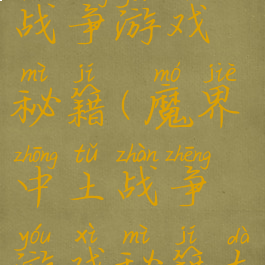 战争游戏
mì jí mó jiè
秘籍(魔界
zhōng tǔ zhàn zhēng
中土战争
yóu xì mì jí dà
游戏秘籍大